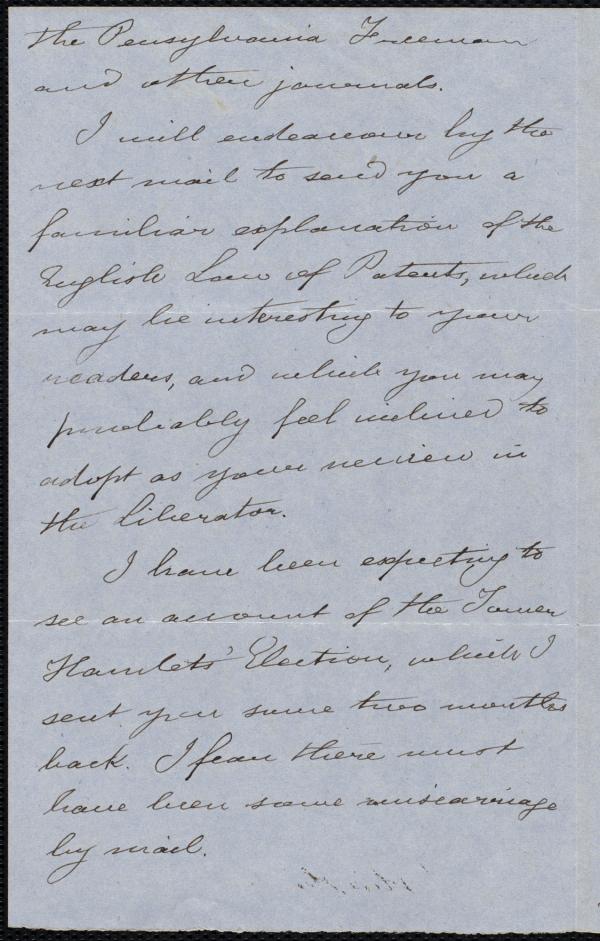 the Pensylvania Freeman
and other journals.
I will endeavour by the
next mail to send you a
familiar explanation of the
English Law of Patents, which
may be interesting to your
readers, and which you may
probably feel inclined to
adopt as your review in
the Liberator.
I have been expecting to
see an account of the Tower
Hamlets' Election, which I
sent you some two months
back. I fear there must
have been some miscarriage
by mail.